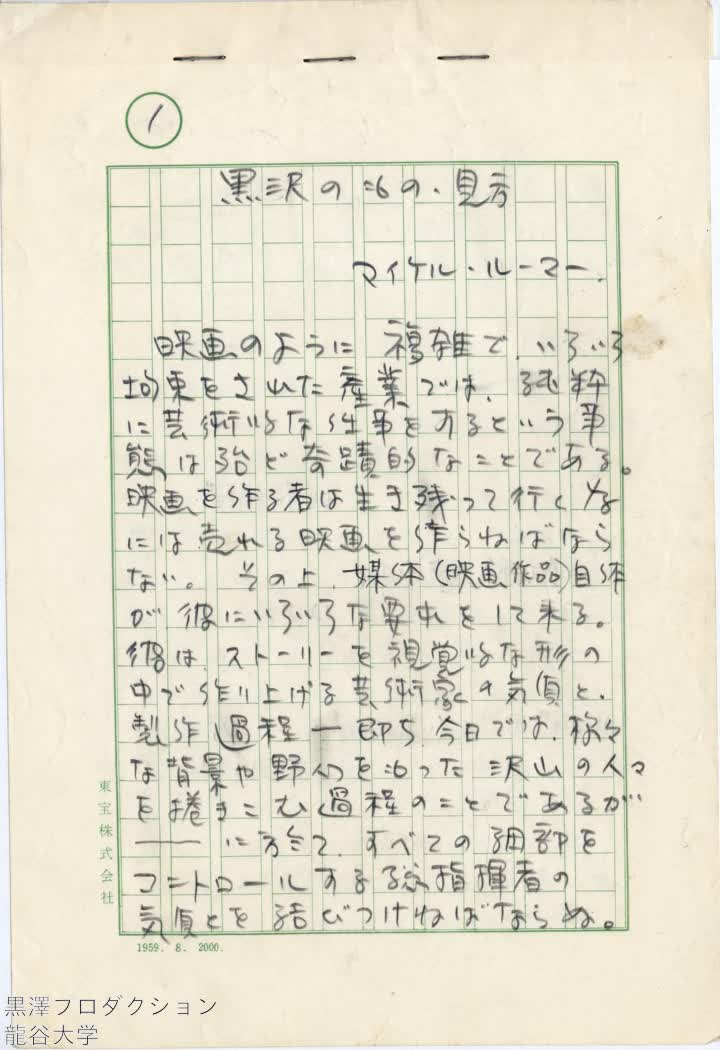 1
黒沢のもの・見方
マイケル・ルーマー.
映画のように複雑で、いろいろ
拘束をされた産業では、純粋
に芸術的な仕事をするという事
態は殆ど奇蹟的なことである。
映画を作る者は生き残って行く為
には売れる映画を作らねばなら
ない。その上、媒体(映画作品)自体
が彼にいろいろな要求をして来る。
彼は、ストーリーを視覚的な形の
中で作り上げる芸術家の気質と、
製作過程―即ち、今日では、様々
な背景や野心をもった沢山の人々
を捲きこむ過程のことであるが
――に於て、すべての細部を
コントロールする総指揮者の
気質とを結びつけねばならぬ。
東宝株式会社
1959. 8. 2000.
黒澤プロダクション
龍谷大学